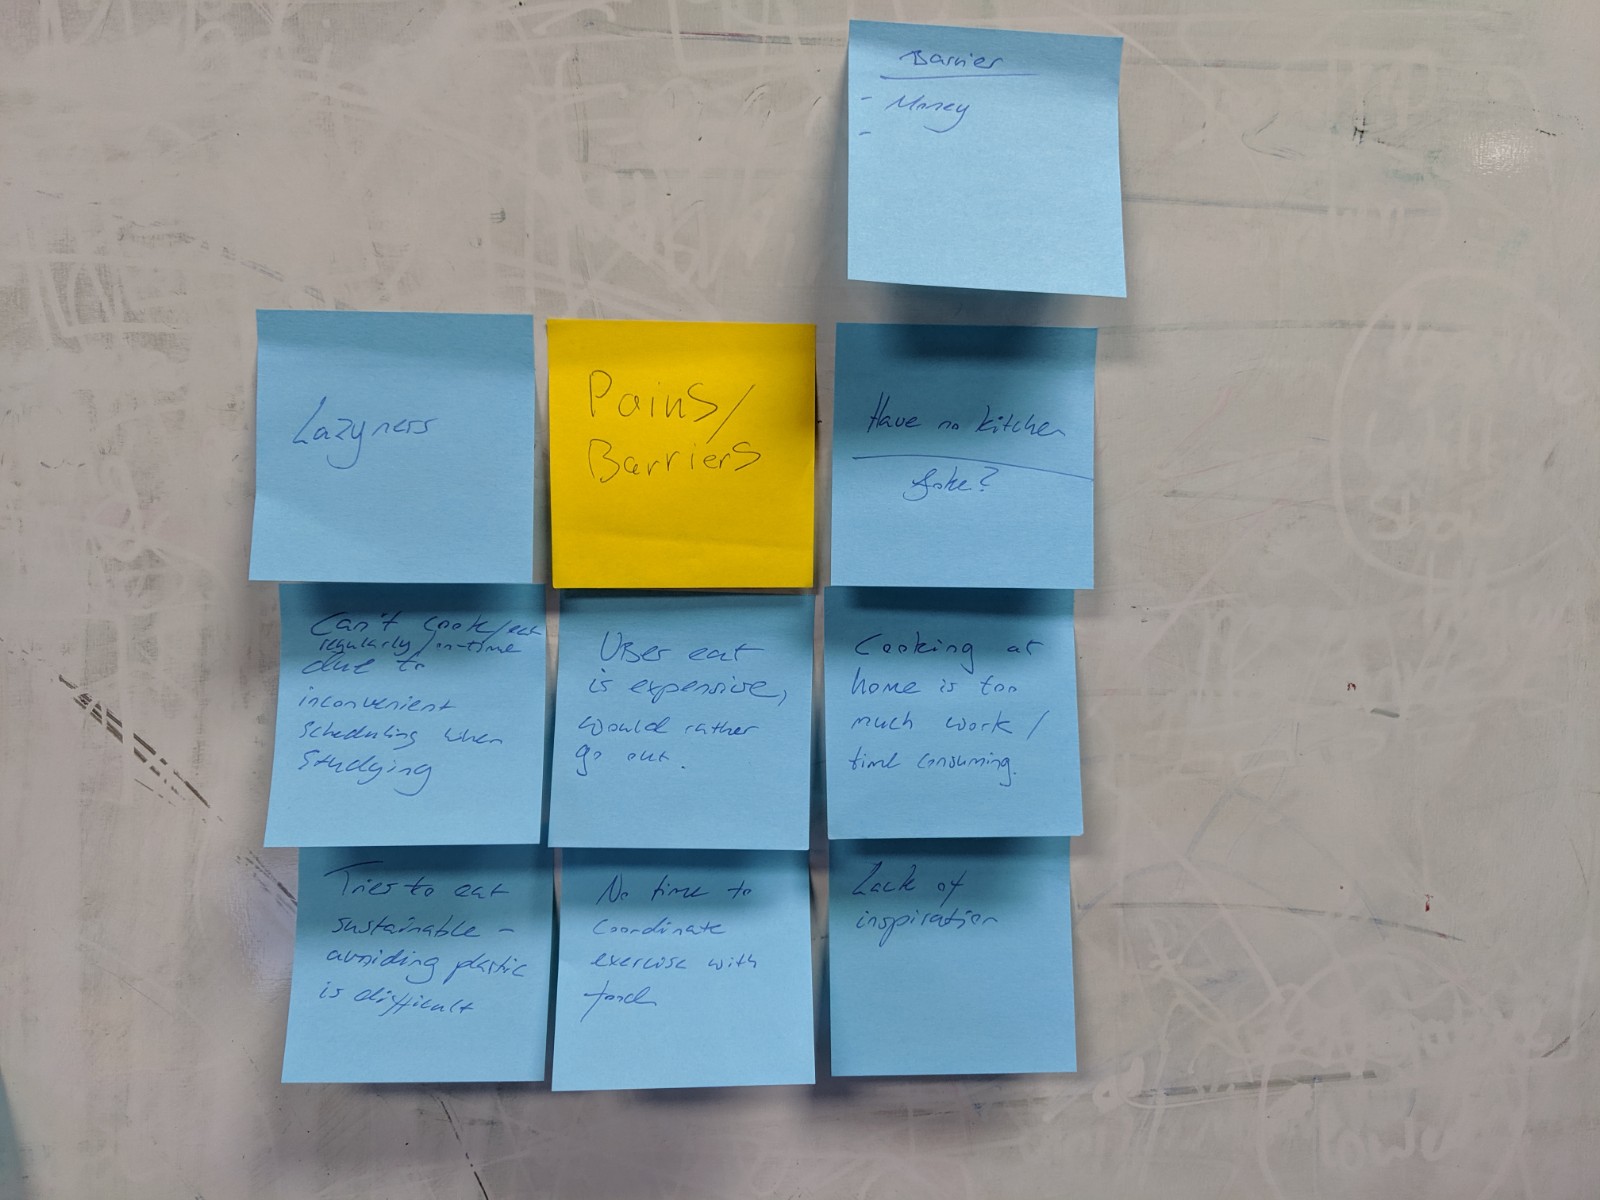 Barrier
- Money
-
Lazyness
Pains/
Barriers
Have no kitchen
Joke?
Can't cook/eat
regularly/on-time
due to
inconvenient
scheduling when
studying
Uber eat
is expensive,
would rather
go out.
Cooking at
home is too
much work/
time consuming.
Tries to eat
sustainable -
avoiding plastic
is difficult
No time to
coordinate
exercise with
food
Lack of
inspiration
Show